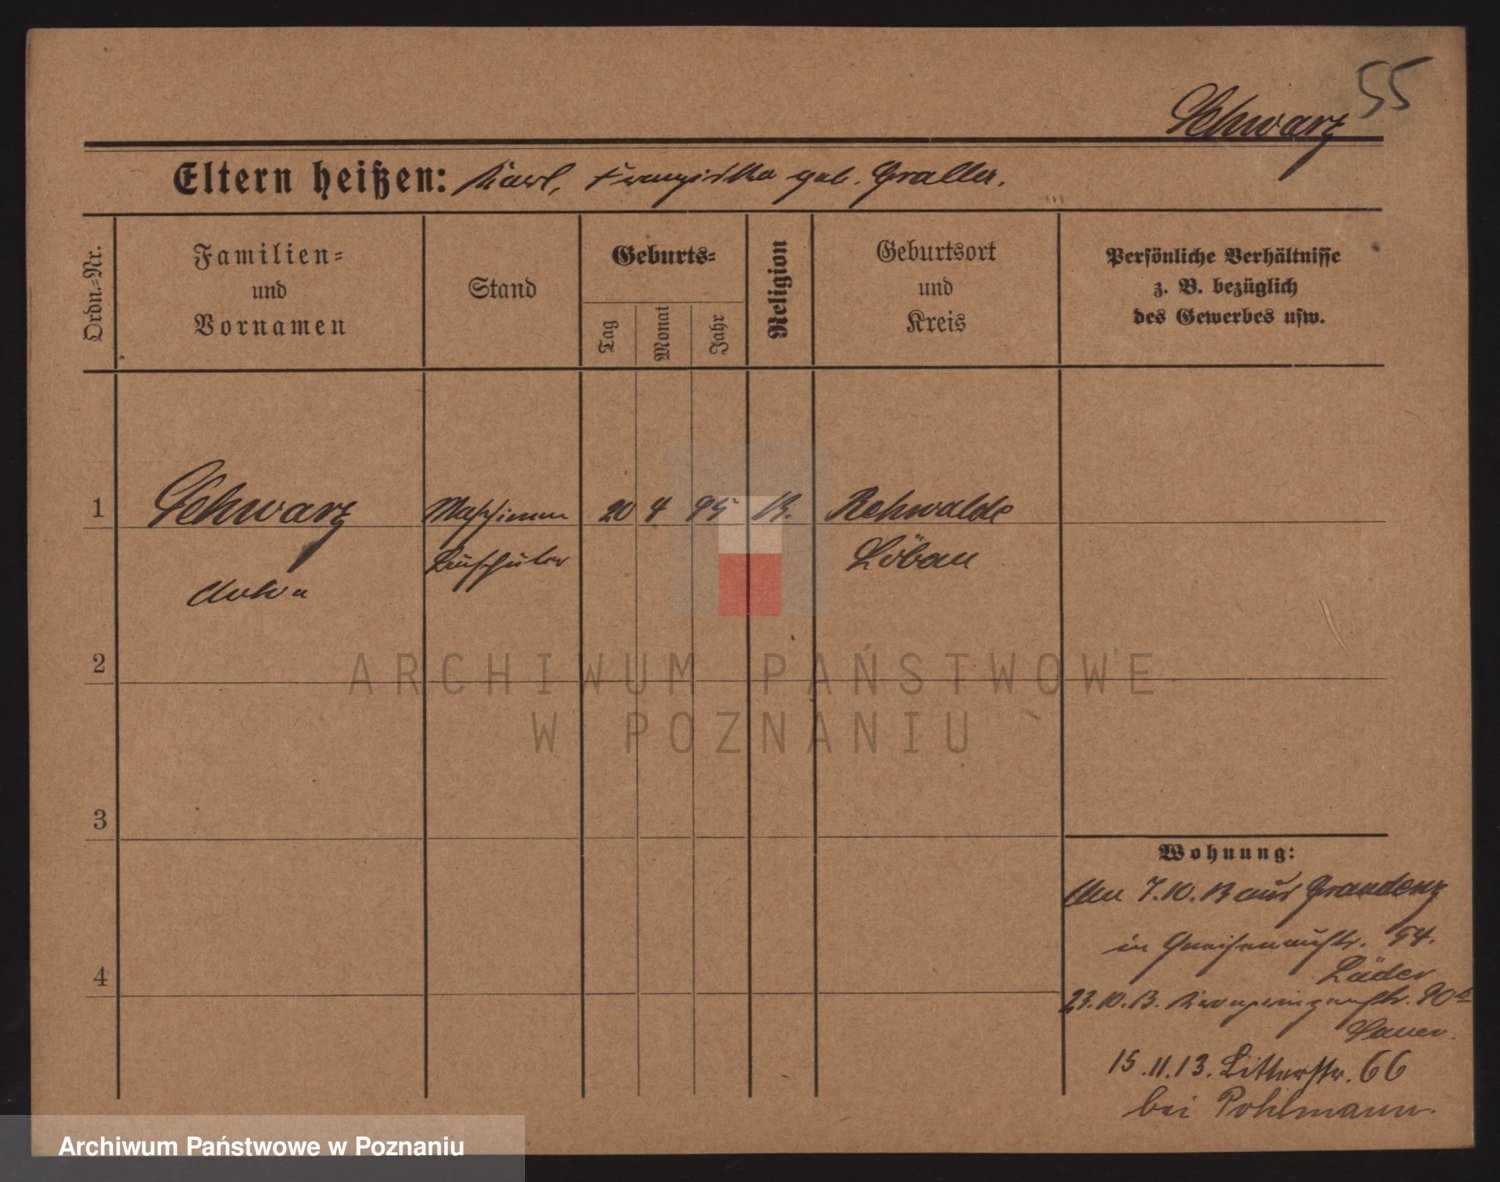 55
Schwarz
Eltern heißen: Karl, Franziska geb. Graller.
Ordn.-Nr.
Familien-
und
Vornamen
Stand
Geburts-
Tag
Monat
Jahr
Religion
Geburtsort
und
Kreis
Persönliche Verhältnisse
z. B. bezüglich
des Gewerbes usw.
1
Schwarz
Maschinen
20 4 95 K. Rehwalde
Löbau
2
3
4
Wohnung:
Am 7.10.13 aus Graudenz
in Gneisenaustr. 54.
Läder
23.10.13. Kronprinzenstr. 90a
Sauer.
15.11.13. Litterstr. 66
bei Pohlmann.
ARCHIWUM PAŃSTWOWE
W POZNANIU
Archiwum Państwowe w Poznaniu